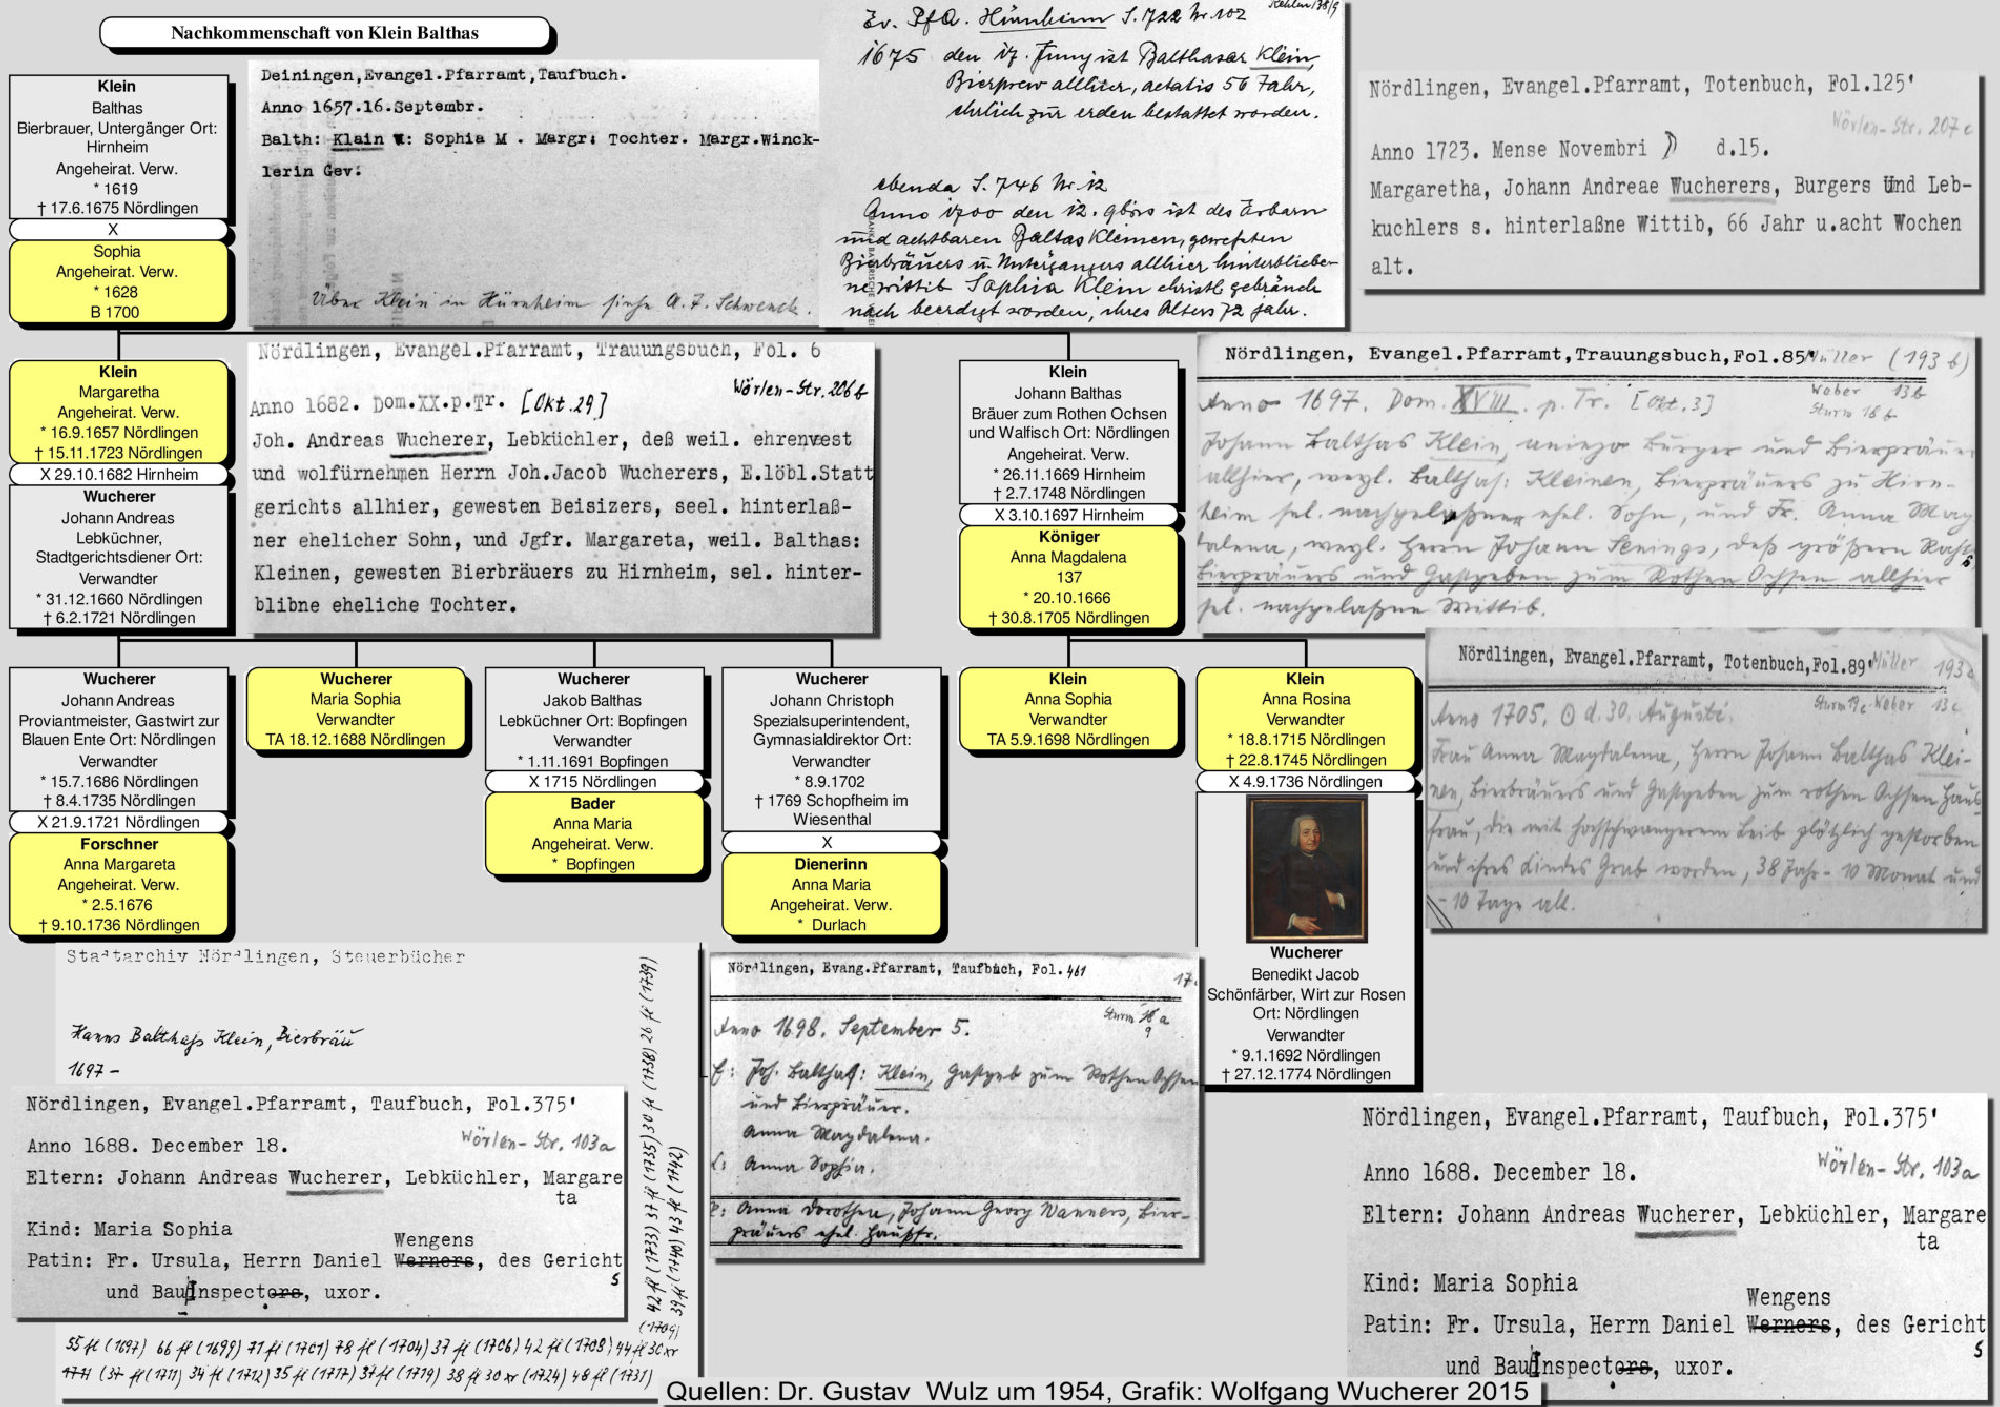 Nachkommenschaft von Klein Balthas
Klein
Balthas
Bierbrauer, Untergänger Ort:
Hirnheim
Angeheirat. Verw.
* 1619
† 17.6.1675 Nördlingen
X
Sophia
Angeheirat. Verw.
* 1628
B 1700
Deiningen,Evangel.Pfarramt,Taufbuch.
Anno 1657.16.Septembr.
Balth: Klain : Sophia M . Margr: Tochter. Margr.Winck-
lerin Gev:
Über Klein in Hürnheim siehe A. F. Schwenck.
Ev. PfA. Hürnheim S. 722 Nr. 102
1675 den 17. Juny ist Balthasar Klein,
Bierprew allhier, aetatis 56 Jahr,
ehrlich zur erden bestattet worden.
ebenda S. 746 Nr. 12
Anno 1700 den 12. 9bris ist des Erbarn
und achtbaren Baltas Kleinen, gewesten
Bierbräuers u. Untergängers allhier hinterbliebe-
ne wittib Sophia Klein christl. gebräuch
nach beerdigt worden, ihres Alters 72 Jahr.
Nördlingen, Evangel.Pfarramt, Totenbuch, Fol.125'
Wörlen-Str. 207 c
Anno 1723. Mense Novembri d.15.
Margaretha, Johann Andreae Wucherers, Burgers Und Leb-
kuchlers s. hinterlaßne Wittib, 66 Jahr u.acht Wochen
alt.
Klein
Margaretha
Angeheirat. Verw.
* 16.9.1657 Nördlingen
† 15.11.1723 Nördlingen
X 29.10.1682 Hirnheim
Wucherer
Johann Andreas
Lebküchner,
Stadtgerichtsdiener Ort:
Verwandter
* 31.12.1660 Nördlingen
† 6.2.1721 Nördlingen
Nördlingen, Evangel.Pfarramt, Trauungsbuch, Fol. 6
Wörlen-Str. 206 b
Anno 1682. Dom.XX.p.Tr. [Okt.29]
Joh. Andreas Wucherer, Lebküchler, deß weil. ehrenvest
und wolfürnehmen Herrn Joh.Jacob Wucherers, E.löbl.Statt
gerichts allhier, gewesten Beisizers, seel. hinterlaß-
ner ehelicher Sohn, und Jgfr. Margareta, weil. Balthas:
Kleinen, gewesten Bierbräuers zu Hirnheim, sel. hinter-
blibne eheliche Tochter.
Klein
Johann Balthas
Bräuer zum Rothen Ochsen
und Walfisch Ort: Nördlingen
Angeheirat. Verw.
* 26.11.1669 Hirnheim
† 2.7.1748 Nördlingen
X 3.10.1697 Hirnheim
Königer
Anna Magdalena
137
* 20.10.1666
† 30.8.1705 Nördlingen
Nördlingen, Evangel.Pfarramt,Trauungsbuch,Fol.85'
Müller (193 b)
Weber 13 b
Sturm 18 b
Anno 1697. Dom. XVIII. p. Tr. [Okt. 3]
Johann Balthas Klein, Burger und Bierpräuer
allhier, weyl. Balthas: Kleinen, Bierpräuers zu Hirn-
heim sel. nachgelaßner ehel. Sohn, und Fr. Anna Mag
dalena, weyl. Herrn Johann deß größern Raths
Bierpräuers und Gastgeben zum Rothen Ochsen allhier
sel. nachgelaßne Wittib.
Wucherer
Johann Andreas
Proviantmeister, Gastwirt zur
Blauen Ente Ort: Nördlingen
Verwandter
* 15.7.1686 Nördlingen
† 8.4.1735 Nördlingen
X 21.9.1721 Nördlingen
Forschner
Anna Margareta
Angeheirat. Verw.
* 2.5.1676
† 9.10.1736 Nördlingen
Wucherer
Maria Sophia
Verwandter
TA 18.12.1688 Nördlingen
Wucherer
Jakob Balthas
Lebküchner Ort: Bopfingen
Verwandter
* 1.11.1691 Bopfingen
X 1715 Nördlingen
Bader
Anna Maria
Angeheirat. Verw.
* Bopfingen
Wucherer
Johann Christoph
Spezialsuperintendent,
Gymnasialdirektor Ort:
Verwandter
* 8.9.1702
† 1769 Schopfheim im
Wiesenthal
X
Dienerinn
Anna Maria
Angeheirat. Verw.
* Durlach
Klein
Anna Sophia
Verwandter
TA 5.9.1698 Nördlingen
Klein
Anna Rosina
Verwandter
* 18.8.1715 Nördlingen
† 22.8.1745 Nördlingen
X 4.9.1736 Nördlingen
Wucherer
Benedikt Jacob
Schönfärber, Wirt zur Rosen
Ort: Nördlingen
Verwandter
* 9.1.1692 Nördlingen
† 27.12.1774 Nördlingen
Nördlingen, Evangel.Pfarramt, Totenbuch,Fol.89'
Müller 193 c
Sturm 19c Weber 13 c
Anno 1705. d. 30. Augusti.
Frau Anna Magdalena, Herrn Johann Balthas Klei-
nen, Bierbräuers und Gastgeben zum rothen Ochsen Haus
frau, die mit hochschwangerem Leib plötzlich gestorben
und ihres Kindes Grab worden, 38 Jahr - 10 Monat und
- 10 Tage alt.
Stadtarchiv Nördlingen, Steuerbücher
Hanns Balthass Klein, Bierbräu
1697 -
Nördlingen, Evangel.Pfarramt, Taufbuch, Fol.375'
Anno 1688. December 18.
Wörlen-Str. 103a
Eltern: Johann Andreas Wucherer, Lebküchler, Margare
ta
Kind: Maria Sophia
Wengens
Patin: Fr. Ursula, Herrn Daniel Werners, des Gericht
s
und BauInspectors, uxor.
55 fl (1697) 66 fl (1699) 71 fl (1701) 78 fl (1704) 37 fl (1706) 42 fl (1708) 44 fl 30 xr
(1709)
1711 (37 fl (1711) 34 fl (1712) 35 fl (1717) 37 fl (1719) 38 fl 30 xr (1724) 48 fl (1731)
42 fl (1733) 37 fl (1735) 30 fl (1738) 26 fl (1739)
39 fl (1740) 43 fl (1742)
Nördlingen, Evang.Pfarramt, Taufbuch, Fol.461
17.
Sturm 18 a
9
Anno 1698. September 5.
E: Joh. Balthas: Klein, Gastgeb zum Rothen Ochsen
und Bierpräuer.
Anna Magdalena.
K: Anna Sophia.
P: Anna Dorothea, Johann Georg Wanners, Bier-
präuers ehel. Hausfr.
Nördlingen, Evangel.Pfarramt, Taufbuch, Fol.375'
Anno 1688. December 18.
Wörlen-Str. 103a
Eltern: Johann Andreas Wucherer, Lebküchler, Margare
ta
Kind: Maria Sophia
Wengens
Patin: Fr. Ursula, Herrn Daniel Werners, des Gericht
s
und BauInspectors, uxor.
Quellen: Dr. Gustav Wulz um 1954, Grafik: Wolfgang Wucherer 2015